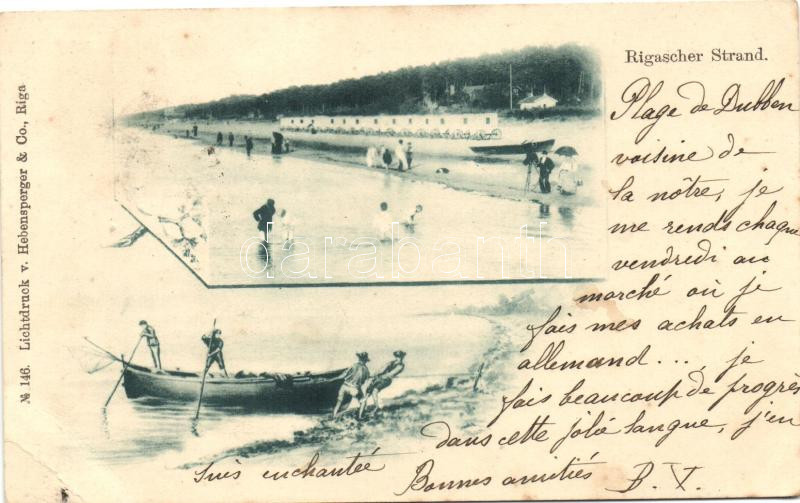 Rigascher Strand.
Plage de Dubben
voisine de
la nôtre, je
me rends chaque
vendredi au
marché où je
fais mes achats en
allemand..., je
fais beaucoup de progrès
dans cette jolie langue, j'en
suis enchantée
Bonnes amitiés B. V.
№ 146. Lichtdruck v. Hebensperger & Co., Riga
darabanth